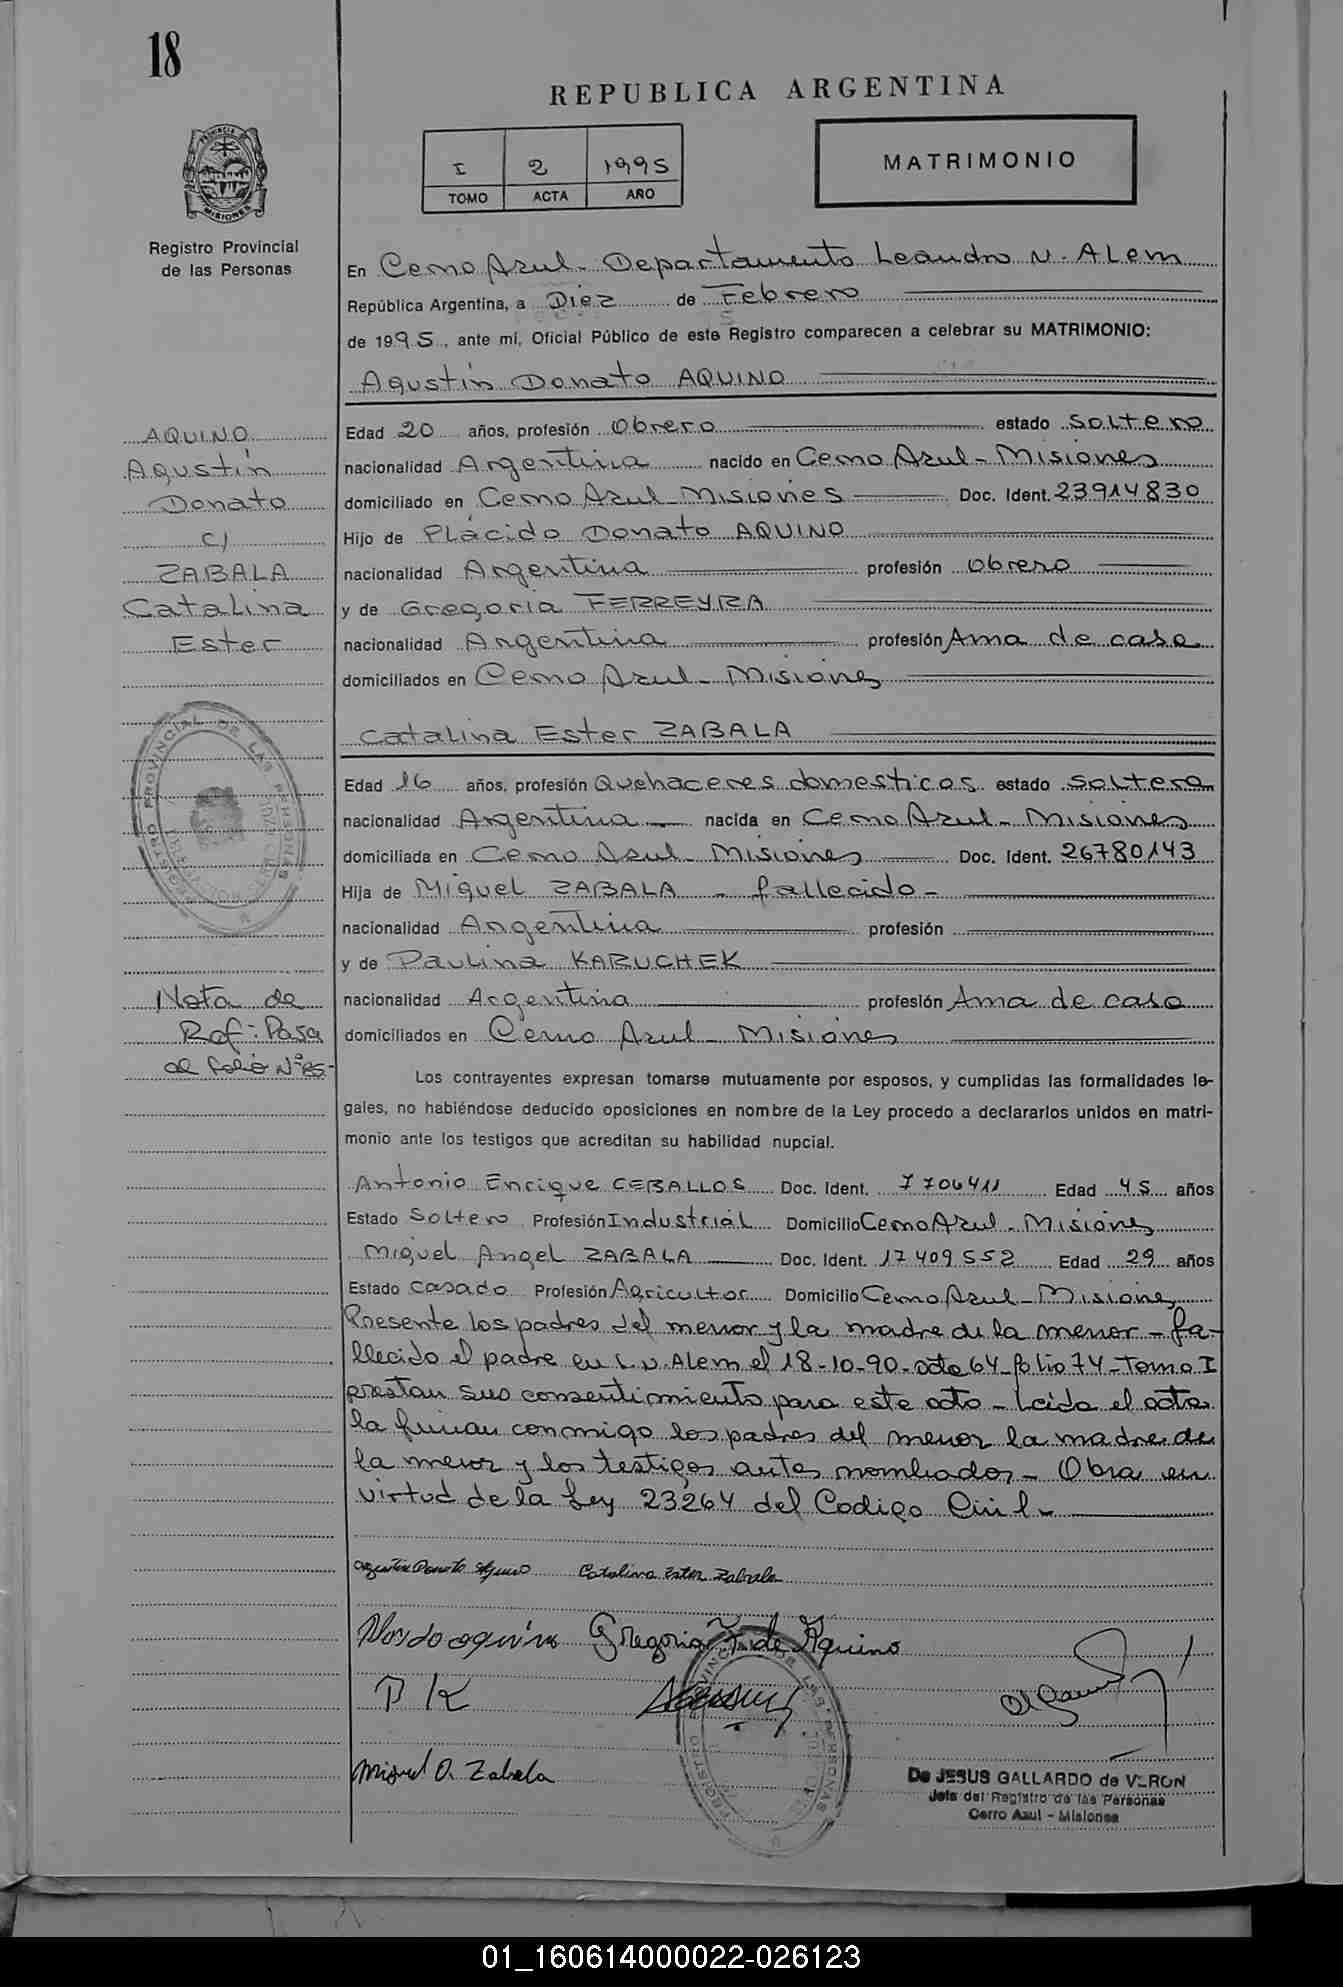 18
REPUBLICA ARGENTINA
I 2 1995
TOMO ACTA AÑO
MATRIMONIO
PROVINCIA DE
MISIONES
Registro Provincial
de las Personas
En Cerro Azul - Departamento Leandro N. Alem
República Argentina, a Diez de Febrero
de 1995, ante mí, Oficial Público de este Registro comparecen a celebrar su MATRIMONIO:
Agustín Donato AQUINO
AQUINO
Agustín
Donato
c/
ZABALA
Catalina
Ester
Edad 20 años, profesión Obrero estado Soltero
nacionalidad Argentina nacido en Cerro Azul - Misiones
domiciliado en Cerro Azul - Misiones Doc. Ident. 23914830
Hijo de Plácido Donato AQUINO
nacionalidad Argentina profesión Obrero
y de Gregoria FERREYRA
nacionalidad Argentina profesión Ama de casa
domiciliados en Cerro Azul - Misiones
Catalina Ester ZABALA
REGISTRO PROVINCIAL DE LAS PERSONAS
Edad 16 años, profesión Quehaceres domesticos estado Soltera
nacionalidad Argentina nacida en Cerro Azul - Misiones
domiciliada en Cerro Azul - Misiones Doc. Ident. 26780143
Hija de Miguel ZABALA - fallecido -
nacionalidad Argentina profesión
y de Paulina KARUCHEK
nacionalidad Argentina profesión Ama de casa
domiciliados en Cerro Azul - Misiones
Nota de
Ref: Pasa
al folio Nº 85.-
Los contrayentes expresan tomarse mutuamente por esposos, y cumplidas las formalidades le-
gales, no habiéndose deducido oposiciones en nombre de la Ley procedo a declararlos unidos en matri-
monio ante los testigos que acreditan su habilidad nupcial.
Antonio Enrique CEBALLOS Doc. Ident. 7706411 Edad 45 años
Estado Soltero Profesión Industrial Domicilio Cerro Azul - Misiones
Miguel Angel ZABALA Doc. Ident. 17409552 Edad 29 años
Estado Casado Profesión Agricultor Domicilio Cerro Azul - Misiones
Presente los padres del menor y la madre de la menor - fa-
llecido el padre en L.N. Alem el 18-10-90 - acta 64 - folio 74 - Tomo I
prestan sus consentimiento para este acto - Leida el acta
la firman conmigo los padres del menor la madre de
la menor y los testigos antes nombrados - Obra en
virtud de la Ley 23264 del Codigo Civil -
Agustin Donato Aquino Catalina Ester Zabala
Gregoria F. de Aquino
P K
Miguel A. Zabala
REGISTRO PROVINCIAL DE LAS PERSONAS
De JESUS GALLARDO de VERON
Jefe del Registro de las Personas
Cerro Azul - Misiones
01_160614000022-026123